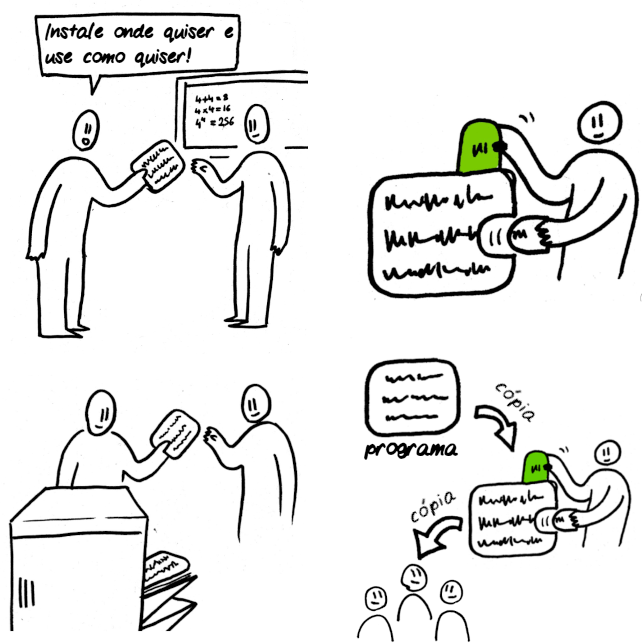 Instale onde quiser e
use como quiser!
4+4=8
4x4=16
4⁴ = 256
cópia
programa
cópia